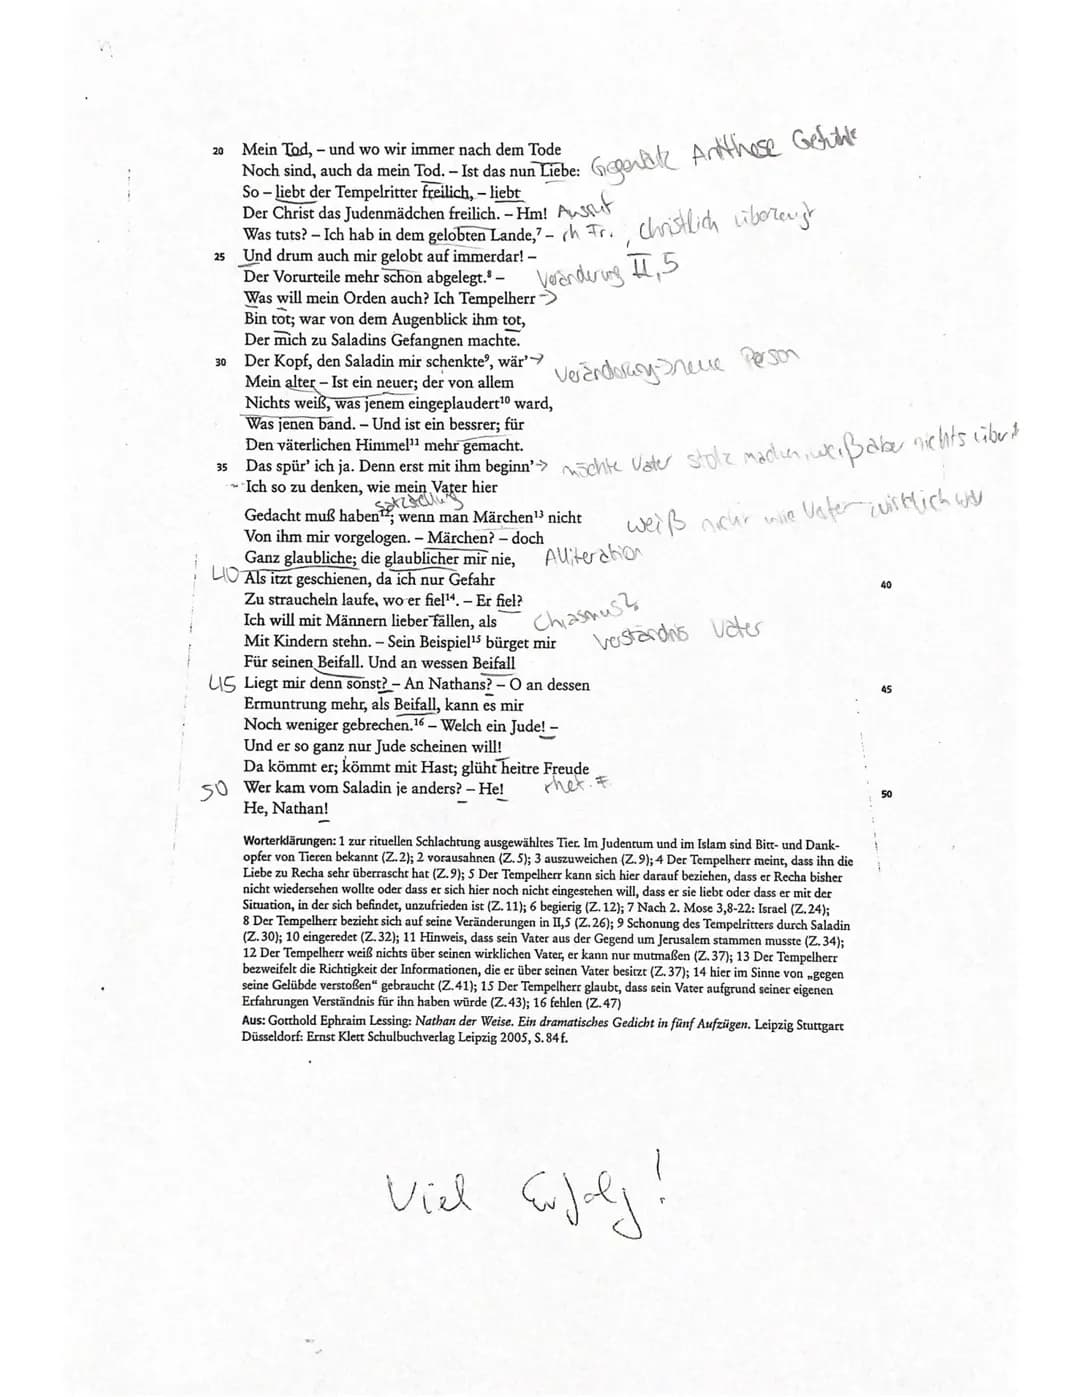 20 Mein Tod, – und wo wir immer nach dem Tode
Noch sind, auch da mein Tod. – Ist das nun Liebe: Gegensatz Antithese Gefühle
So – liebt der Tempelritter freilich, – liebt
Der Christ das Judenmädchen freilich. – Hm! Ausruf
Was tuts? – Ich hab in dem gelobten Lande,⁷ – rh Fr., christlich überzeugt
25 Und drum auch mir gelobt auf immerdar! –
Der Vorurteile mehr schon abgelegt.⁸ – Veränderung II,5
Was will mein Orden auch? Ich Tempelherr ->
Bin tot; war von dem Augenblick ihm tot,
Der mich zu Saladins Gefangnen machte.
30 Der Kopf, den Saladin mir schenkte⁹, wär' -> Veränderung -> neue Person
Mein alter – Ist ein neuer; der von allem
Nichts weiß, was jenem eingeplaudert¹⁰ ward,
Was jenen band. – Und ist ein bessrer; für
Den väterlichen Himmel¹¹ mehr gemacht.
35 Das spür' ich ja. Denn erst mit ihm beginn' -> möchte Vater stolz machen, weiß aber nichts über
Ich so zu denken, wie mein Vater hier
Gedacht muß haben¹²; wenn man Märchen¹³ nicht weiß nicht wie Vater wirklich war
Von ihm mir vorgelogen. – Märchen? – doch
Ganz glaubliche; die glaublicher mir nie, Alliteration
40 Als itzt geschienen, da ich nur Gefahr 40
Zu straucheln laufe, wo er fiel¹⁴. – Er fiel?
Ich will mit Männern lieber fallen, als Chiasmus?
Mit Kindern stehn. – Sein Beispiel¹⁵ bürget mir Verständnis Vater
Für seinen Beifall. Und an wessen Beifall
45 Liegt mir denn sonst? – An Nathans? – O an dessen 45
Ermuntrung mehr, als Beifall, kann es mir
Noch weniger gebrechen.¹⁶ – Welch ein Jude! –
Und er so ganz nur Jude scheinen will!
Da kömmt er; kömmt mit Hast; glüht heitre Freude
50 Wer kam vom Saladin je anders? – He! rhet. F 50
He, Nathan!
Worterklärungen: 1 zur rituellen Schlachtung ausgewähltes Tier. Im Judentum und im Islam sind Bitt- und Dank-
opfer von Tieren bekannt (Z. 2); 2 vorausahnen (Z. 5); 3 auszuweichen (Z. 9); 4 Der Tempelherr meint, dass ihn die
Liebe zu Recha sehr überrascht hat (Z. 9); 5 Der Tempelherr kann sich hier darauf beziehen, dass er Recha bisher
nicht wiedersehen wollte oder dass er sich hier noch nicht eingestehen will, dass er sie liebt oder dass er mit der
Situation, in der sich befindet, unzufrieden ist (Z. 11); 6 begierig (Z. 12); 7 Nach 2. Mose 3,8-22: Israel (Z. 24);
8 Der Tempelherr bezieht sich auf seine Veränderungen in II,5 (Z. 26); 9 Schonung des Tempelritters durch Saladin
(Z. 30); 10 eingeredet (Z. 32); 11 Hinweis, dass sein Vater aus der Gegend um Jerusalem stammen musste (Z. 34);
12 Der Tempelherr weiß nichts über seinen wirklichen Vater, er kann nur mutmaßen (Z. 37); 13 Der Tempelherr
bezweifelt die Richtigkeit der Informationen, die er über seinen Vater besitzt (Z. 37); 14 hier im Sinne von „gegen
seine Gelübde verstoßen“ gebraucht (Z. 41); 15 Der Tempelherr glaubt, dass sein Vater aufgrund seiner eigenen
Erfahrungen Verständnis für ihn haben würde (Z. 43); 16 fehlen (Z. 47)
Aus: Gotthold Ephraim Lessing: Nathan der Weise. Ein dramatisches Gedicht in fünf Aufzügen. Leipzig Stuttgart
Düsseldorf: Ernst Klett Schulbuchverlag Leipzig 2005, S. 84 f.
Viel Erfolg!